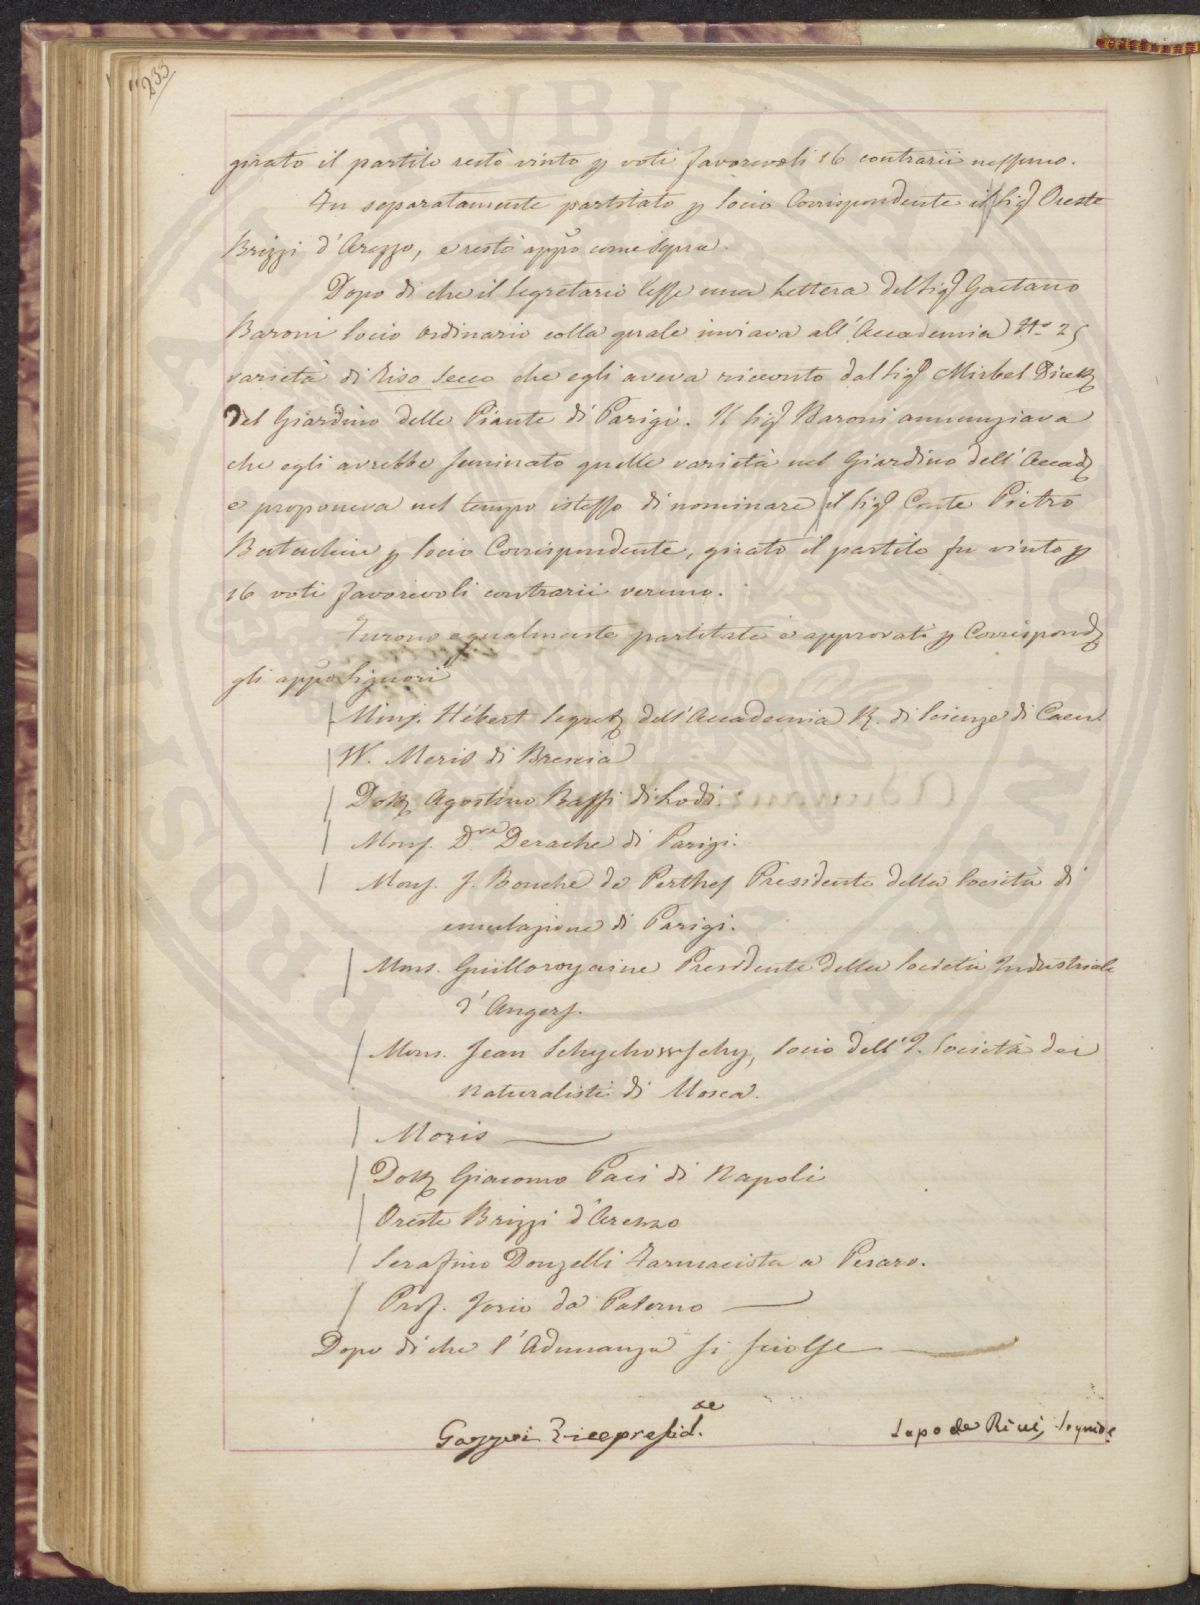 233
girato il partito restò vinto p voti favorevoli 16 contrarii nessuno.
Fu separatamente partitato p Socio Corrispondente il Sigr Oreste
Brizzi d'Arezzo, e restò appo come Sopra.
Dopo di che il Segretario lesse una Lettera del Sigr Gaetano
Baroni Socio Ordinario colla quale inviava all'Accademia No 25
varietà di Riso Secco che egli aveva ricevuto dal Sigr Mirbel Dirett
del Giardino delle Piante di Parigi. Il Sigr Baroni annunziava
che egli avrebbe seminato quelle varietà nel Giardino dell'Accad
e proponeva nel tempo istesso di nominare il Sigr Conte Pietro
p Socio Corrispondente, girato il partito fu vinto p
16 voti favorevoli contrarii veruno.
Furono egualmente partitati e approvati p Corrispond
gli appo Signori
Mons. Hébert Segret dell'Accademia R. di Scienze di Caen.
W. Meris di Brescia
Dott Agostino Bassi di Lodi.
Mons. Dra Derache di Parigi.
Mons. J. Bouche de Perthes Presidente della Società di
emulazione di Parigi.
Mons. Presidente della Società Industriale
d'Angers.
Mons. Jean Schychowsschy, Socio dell'I. Società dei
Naturalisti di Mosca.
Moris
Dott Giacomo Paci di Napoli
Oreste Brizzi d'Arezzo
Serafino Donzelli Farmacista a Pesaro.
Prof. Jorio da Palermo
Dopo di che l'Adunanza si sciolse
Gazzeri Vicepresid.te
Lapo de Ricci,